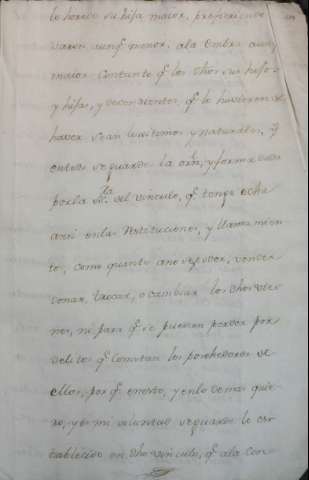 le herede su hija maior, prefiriendo
varon aunq̃ menor, ala embra aunq̃
maior Contanto q̃ los dhos sus hijos
y hijas, y decendientes, q̃ le huvieren de
haver sean lexitimos y naturales, y
entodo se guarde la orñ, y forma dada
por la ssra. del vinculo, q̃ tengo echa
assi en las Instituciones, y llamamien
to, como quanto ano se poder, vender
donar, trocar, o cambiar los dhos vie
nes, ni para q̃ se puedan perder por
delitos q̃ Cometan los poehedores de
ellos, por q̃ enesto, y enlo demas quie
ro, y es mi voluntad se guarde lo es
tablecido en dho vinculo, q̃ ala con